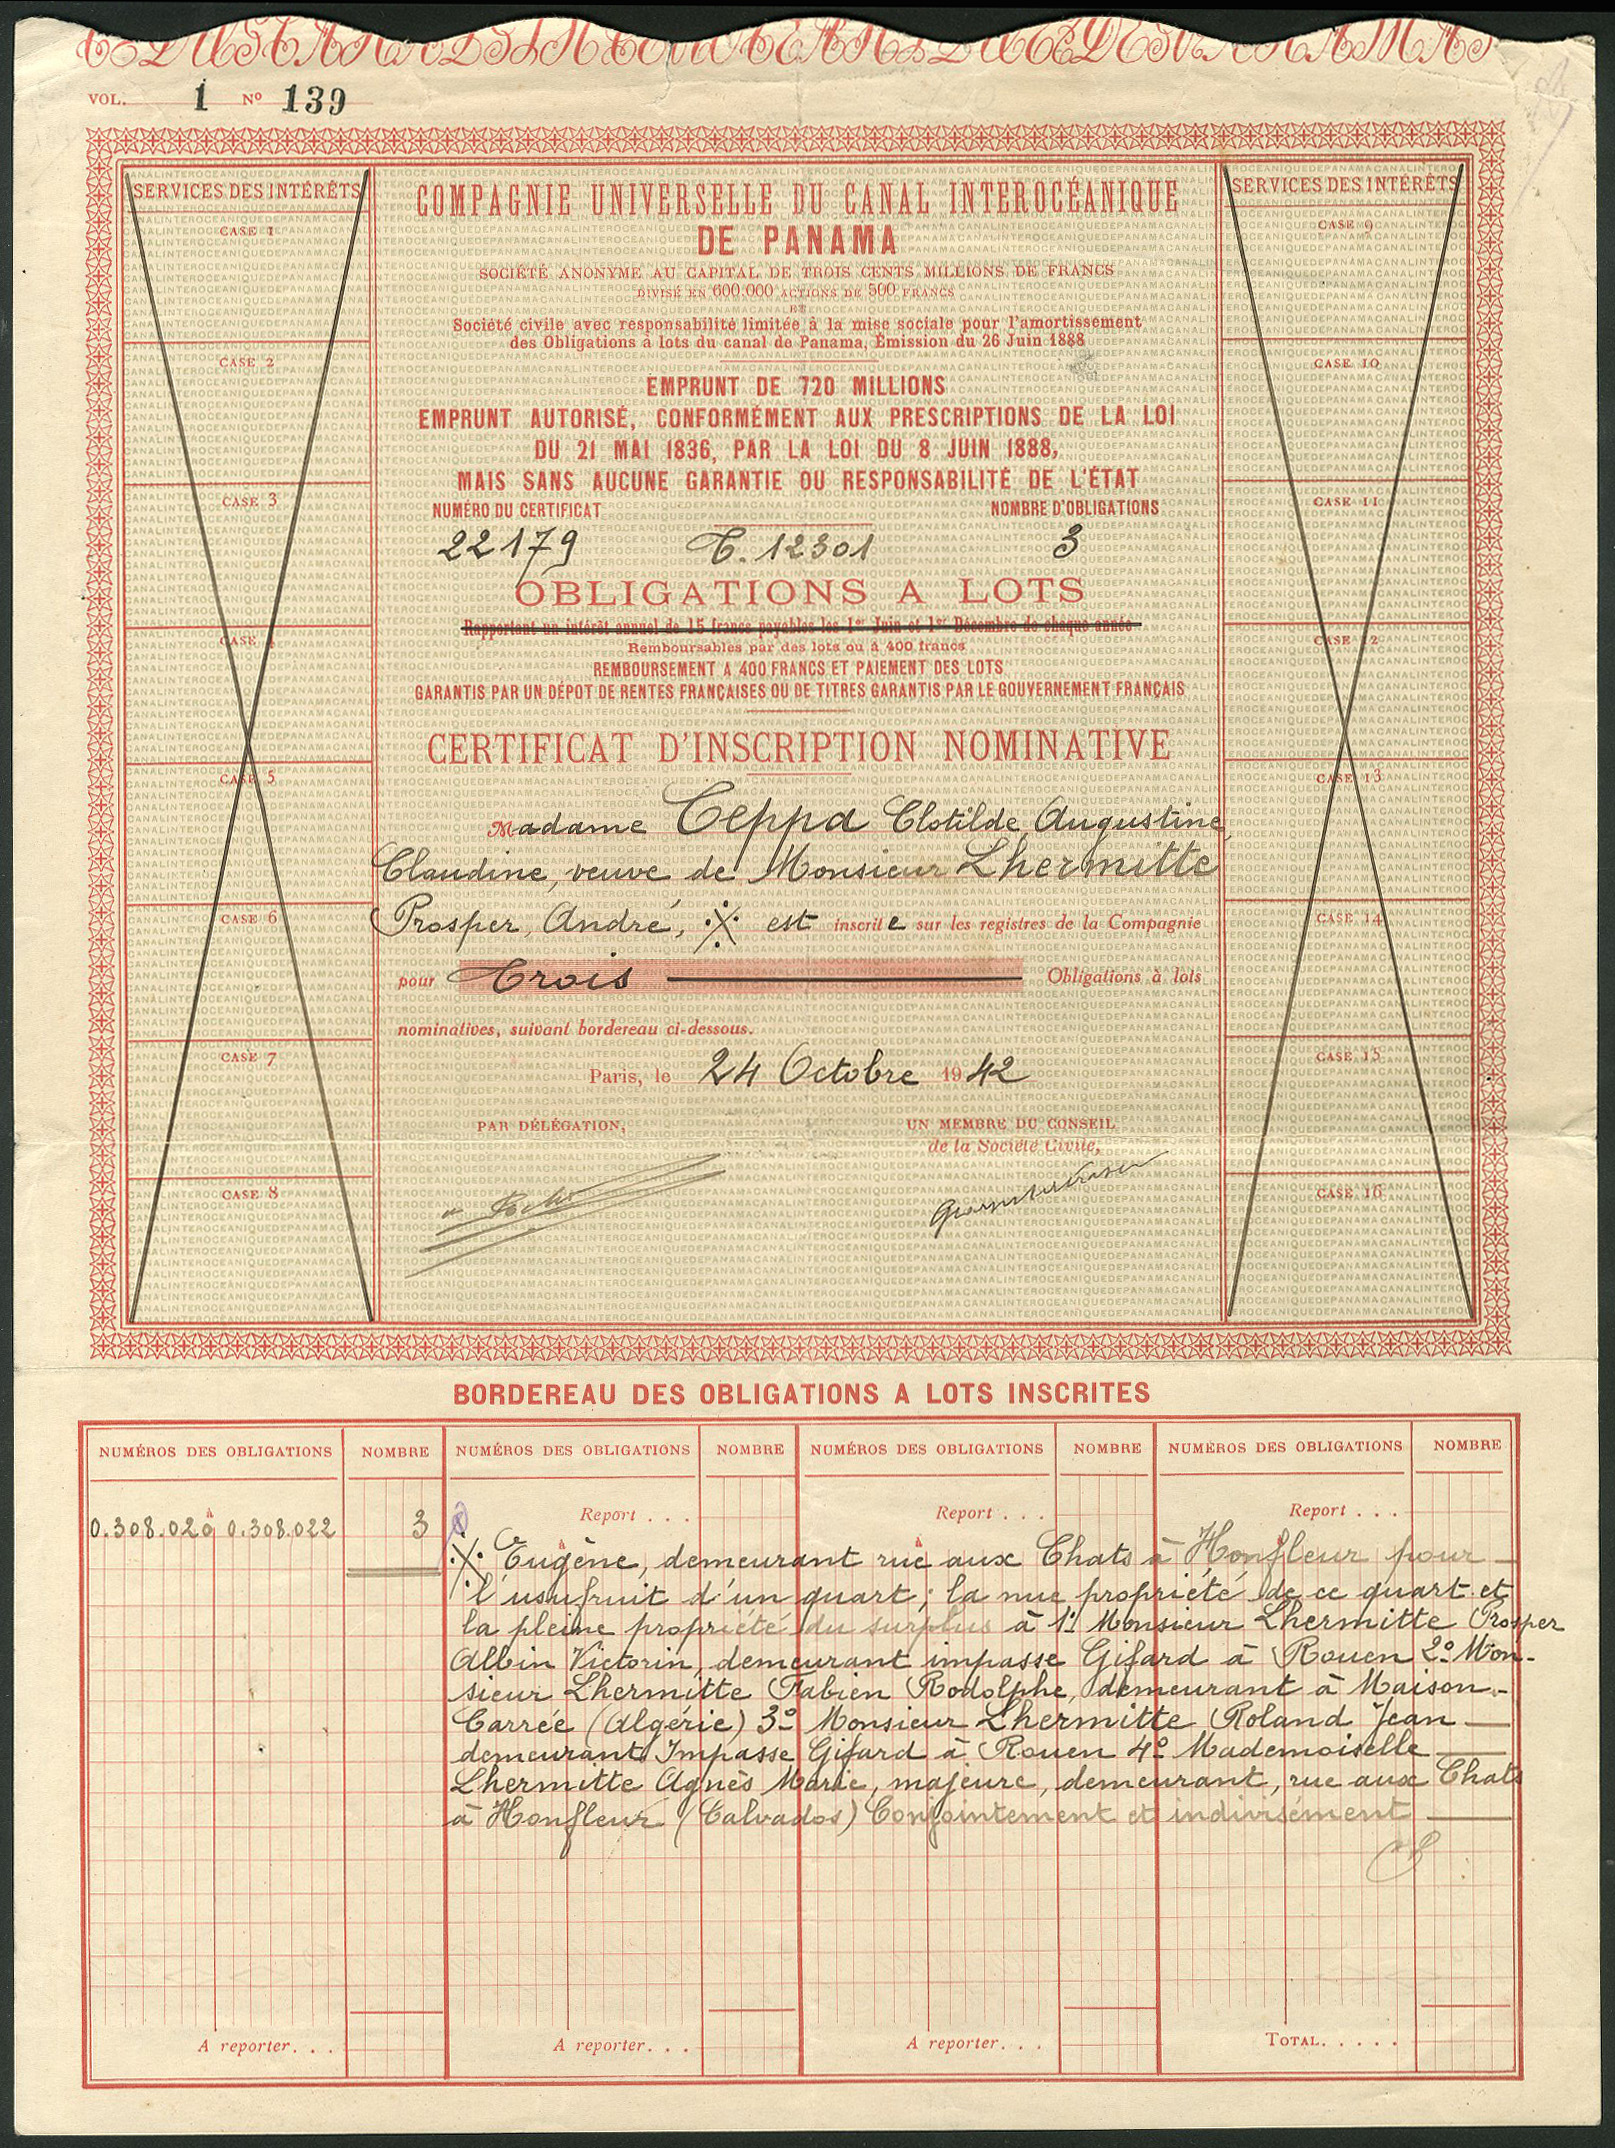 VOL. 1 Nº 139
SERVICES DES INTÉRÊTS
CASE 1
CASE 2
CASE 3
CASE 4
CASE 5
CASE 6
CASE 7
CASE 8
COMPAGNIE UNIVERSELLE DU CANAL INTEROCÉANIQUE
DE PANAMA
SOCIÉTÉ ANONYME AU CAPITAL DE TROIS CENTS MILLIONS DE FRANCS
DIVISÉ EN 600.000 ACTIONS DE 500 FRANCS
ET
Société civile avec responsabilité limitée à la mise sociale pour l'amortissement
des Obligations à lots du canal de Panama, Émission du 26 Juin 1888
EMPRUNT DE 720 MILLIONS
EMPRUNT AUTORISÉ, CONFORMÉMENT AUX PRESCRIPTIONS DE LA LOI
DU 21 MAI 1836, PAR LA LOI DU 8 JUIN 1888,
MAIS SANS AUCUNE GARANTIE OU RESPONSABILITÉ DE L'ÉTAT
NUMÉRO DU CERTIFICAT NOMBRE D'OBLIGATIONS
22179 C. 12301 3
OBLIGATIONS A LOTS
Rapportant un intérêt annuel de 15 francs payables les 1er Juin et 1er Décembre de chaque année
Remboursables par des lots ou à 400 francs
REMBOURSEMENT A 400 FRANCS ET PAIEMENT DES LOTS
GARANTIS PAR UN DÉPOT DE RENTES FRANÇAISES OU DE TITRES GARANTIS PAR LE GOUVERNEMENT FRANÇAIS
CERTIFICAT D'INSCRIPTION NOMINATIVE
Madame Ceppa Clotilde, Augustine,
Claudine, veuve de Monsieur Lhermitte
Prosper, André, ·/. est inscrite sur les registres de la Compagnie
pour Trois Obligations à lots
nominatives, suivant bordereau ci-dessous.
Paris, le 24 Octobre 1942
PAR DÉLÉGATION, UN MEMBRE DU CONSEIL
de la Société Civile,
SERVICES DES INTÉRÊTS
CASE 9
CASE 10
CASE 11
CASE 12
CASE 13
CASE 14
CASE 15
CASE 16
BORDEREAU DES OBLIGATIONS A LOTS INSCRITES
NUMÉROS DES OBLIGATIONS NOMBRE NUMÉROS DES OBLIGATIONS NOMBRE NUMÉROS DES OBLIGATIONS NOMBRE NUMÉROS DES OBLIGATIONS NOMBRE
Report . . . Report . . . Report . . .
0.308.020 à 0.308.022 3
·/. Eugène, demeurant rue aux Chats à Honfleur pour
l'usufruit d'un quart; la nue propriété de ce quart et
la pleine propriété du surplus à 1º Monsieur Lhermitte Prosper
Albin Victorin, demeurant impasse Gifard à Rouen 2º Mon-
sieur Lhermitte Fabien Rodolphe, demeurant à Maison-
Carrée (Algérie) 3º Monsieur Lhermitte Roland Jean
demeurant Impasse Gifard à Rouen 4º Mademoiselle
Lhermitte Agnès Marie, majeure, demeurant, rue aux Chats
à Honfleur (Calvados) Conjointement et indivisément
A reporter. . . A reporter. . . A reporter. . . TOTAL. . . . .